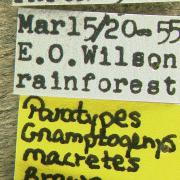 Mar15/20-55
E.O.Wilson
rainforest
Paratypes
Gnamptogenys
macretes
Brown